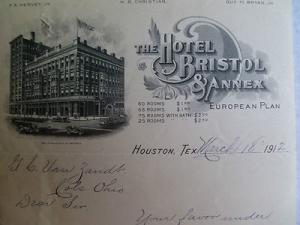 F. S. HERVEY, JR
H. B. CHRISTIAN,
GUY M. BRYAN, JR
THE HOTEL
BRISTOL
& ANNEX
EUROPEAN PLAN
60 ROOMS $1.00
68 ROOMS $1.50
75 ROOMS WITH BATH $2.00
25 ROOMS $2.50
HOUSTON, TEX March 16 1912
G. C. Van Zandt
Cols Ohio
Dear Sir
Your favor under